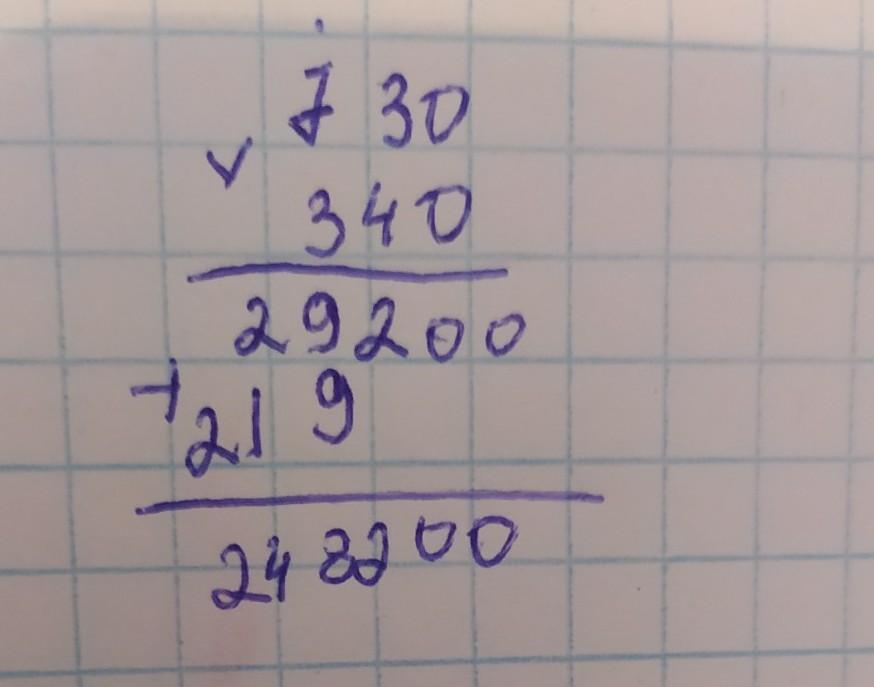 730
×
340
29200
+
219
248200